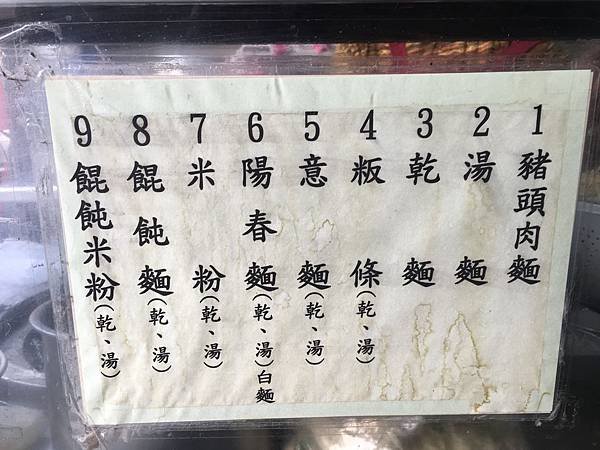 1 豬頭肉麵
2 湯麵
3 乾麵
4 粄條(乾、湯)
5 意麵(乾、湯)
6 陽春麵(乾、湯)白麵
7 米粉(乾、湯)
8 餛飩麵(乾、湯)
9 餛飩米粉(乾、湯)